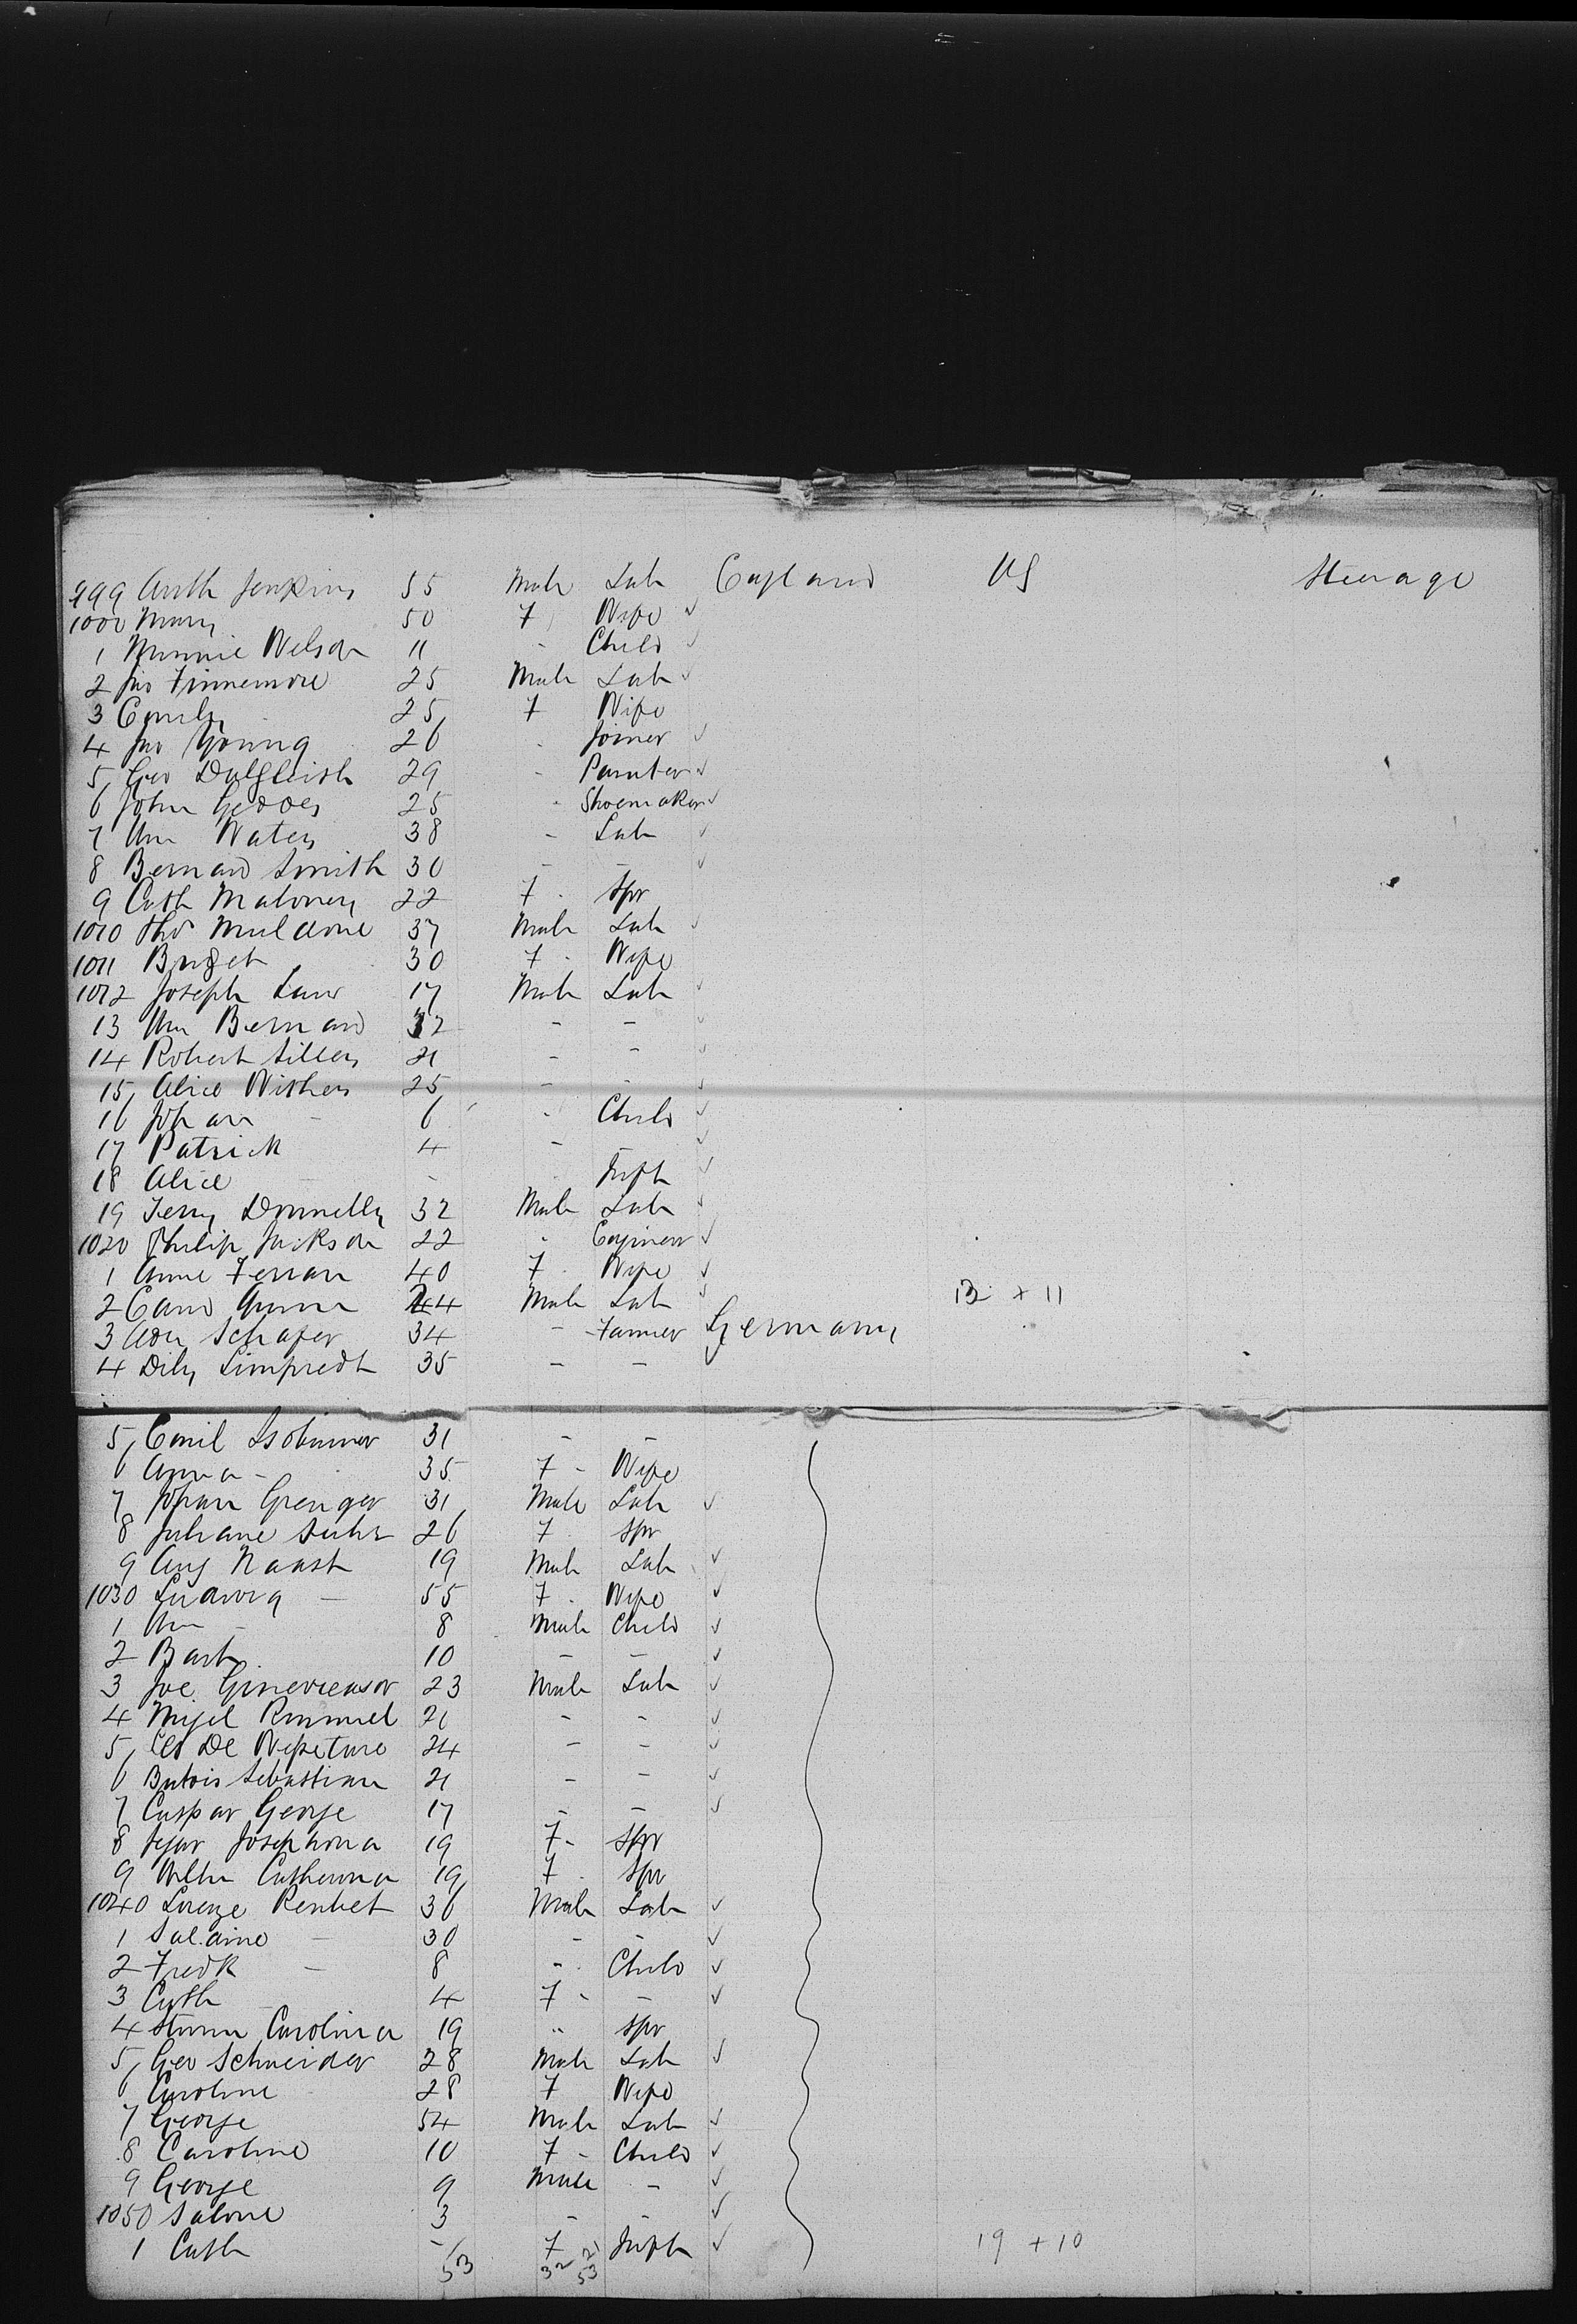 999 Arth Jenkins 55 Male Lab England US Steerage
1000 Mary 50 F Wife
1 Minnie Nelson 11 - Child
2 Jno Finnemore 25 Male Lab
3 Emily 25 F Wife
4 Jno Young 26 - Joiner
5 Geo Dalgleish 29 - Painter
6 John Geddes 25 - Shoemaker
7 Wm Waters 38 - Lab
8 Bernard Smith 30 - -
9 Cath Maloney 22 F Spr
1010 Thos Muldone 37 Male Lab
1011 Bridget 30 F Wife
1012 Joseph Law 17 Male Lab
13 Wm Bernard 32 - -
14 Robert Sillery 21 - -
15 Alice Withers 25 - -
16 Johan - 6 - Child
17 Patrick 4 - -
18 Alice - Inft
19 Jerry Donnelly 32 Male Lab
1020 Philip Jackson 22 - Engineer
1 Anne Ferran 40 F Wife
2 Gunn 24 Male Lab 13 + 11
3 Schafer 34 - Farmer Germany
4 Limpredt 35 - -
5 Emil 31 - -
6 Anna - 35 F - Wife
7 Johan Grenger 31 Male Lab
8 Juliane 26 F Spr
9 Aug Naast 19 Male Lab
1030 Ludwig - 55 F Wife
1 Wm - 8 Male Child
2 Barb 10 - -
3 Joe 23 Male Lab
4 Rimmel 21 - -
5 De 24 - -
6 Sebastian 21 - -
7 Caspar George 17 - -
8 Josephina 19 F - Spr
9 Catherina 19 F Spr
1040 Lorenz Renbet 36 Male Lab
1 - 30 - -
2 Fredk - 8 - Child
3 Cath 4 F - -
4 Sturm Carolina 19 " Spr
5 Geo Schneider 28 Male Lab
6 Caroline 28 F Wife
7 George 54 Male Lab
8 Caroline 10 F - Child
9 George 9 Male -
1050 Salome 3 - -
1 Cath - F Inft 19 + 10
53 32 21
53